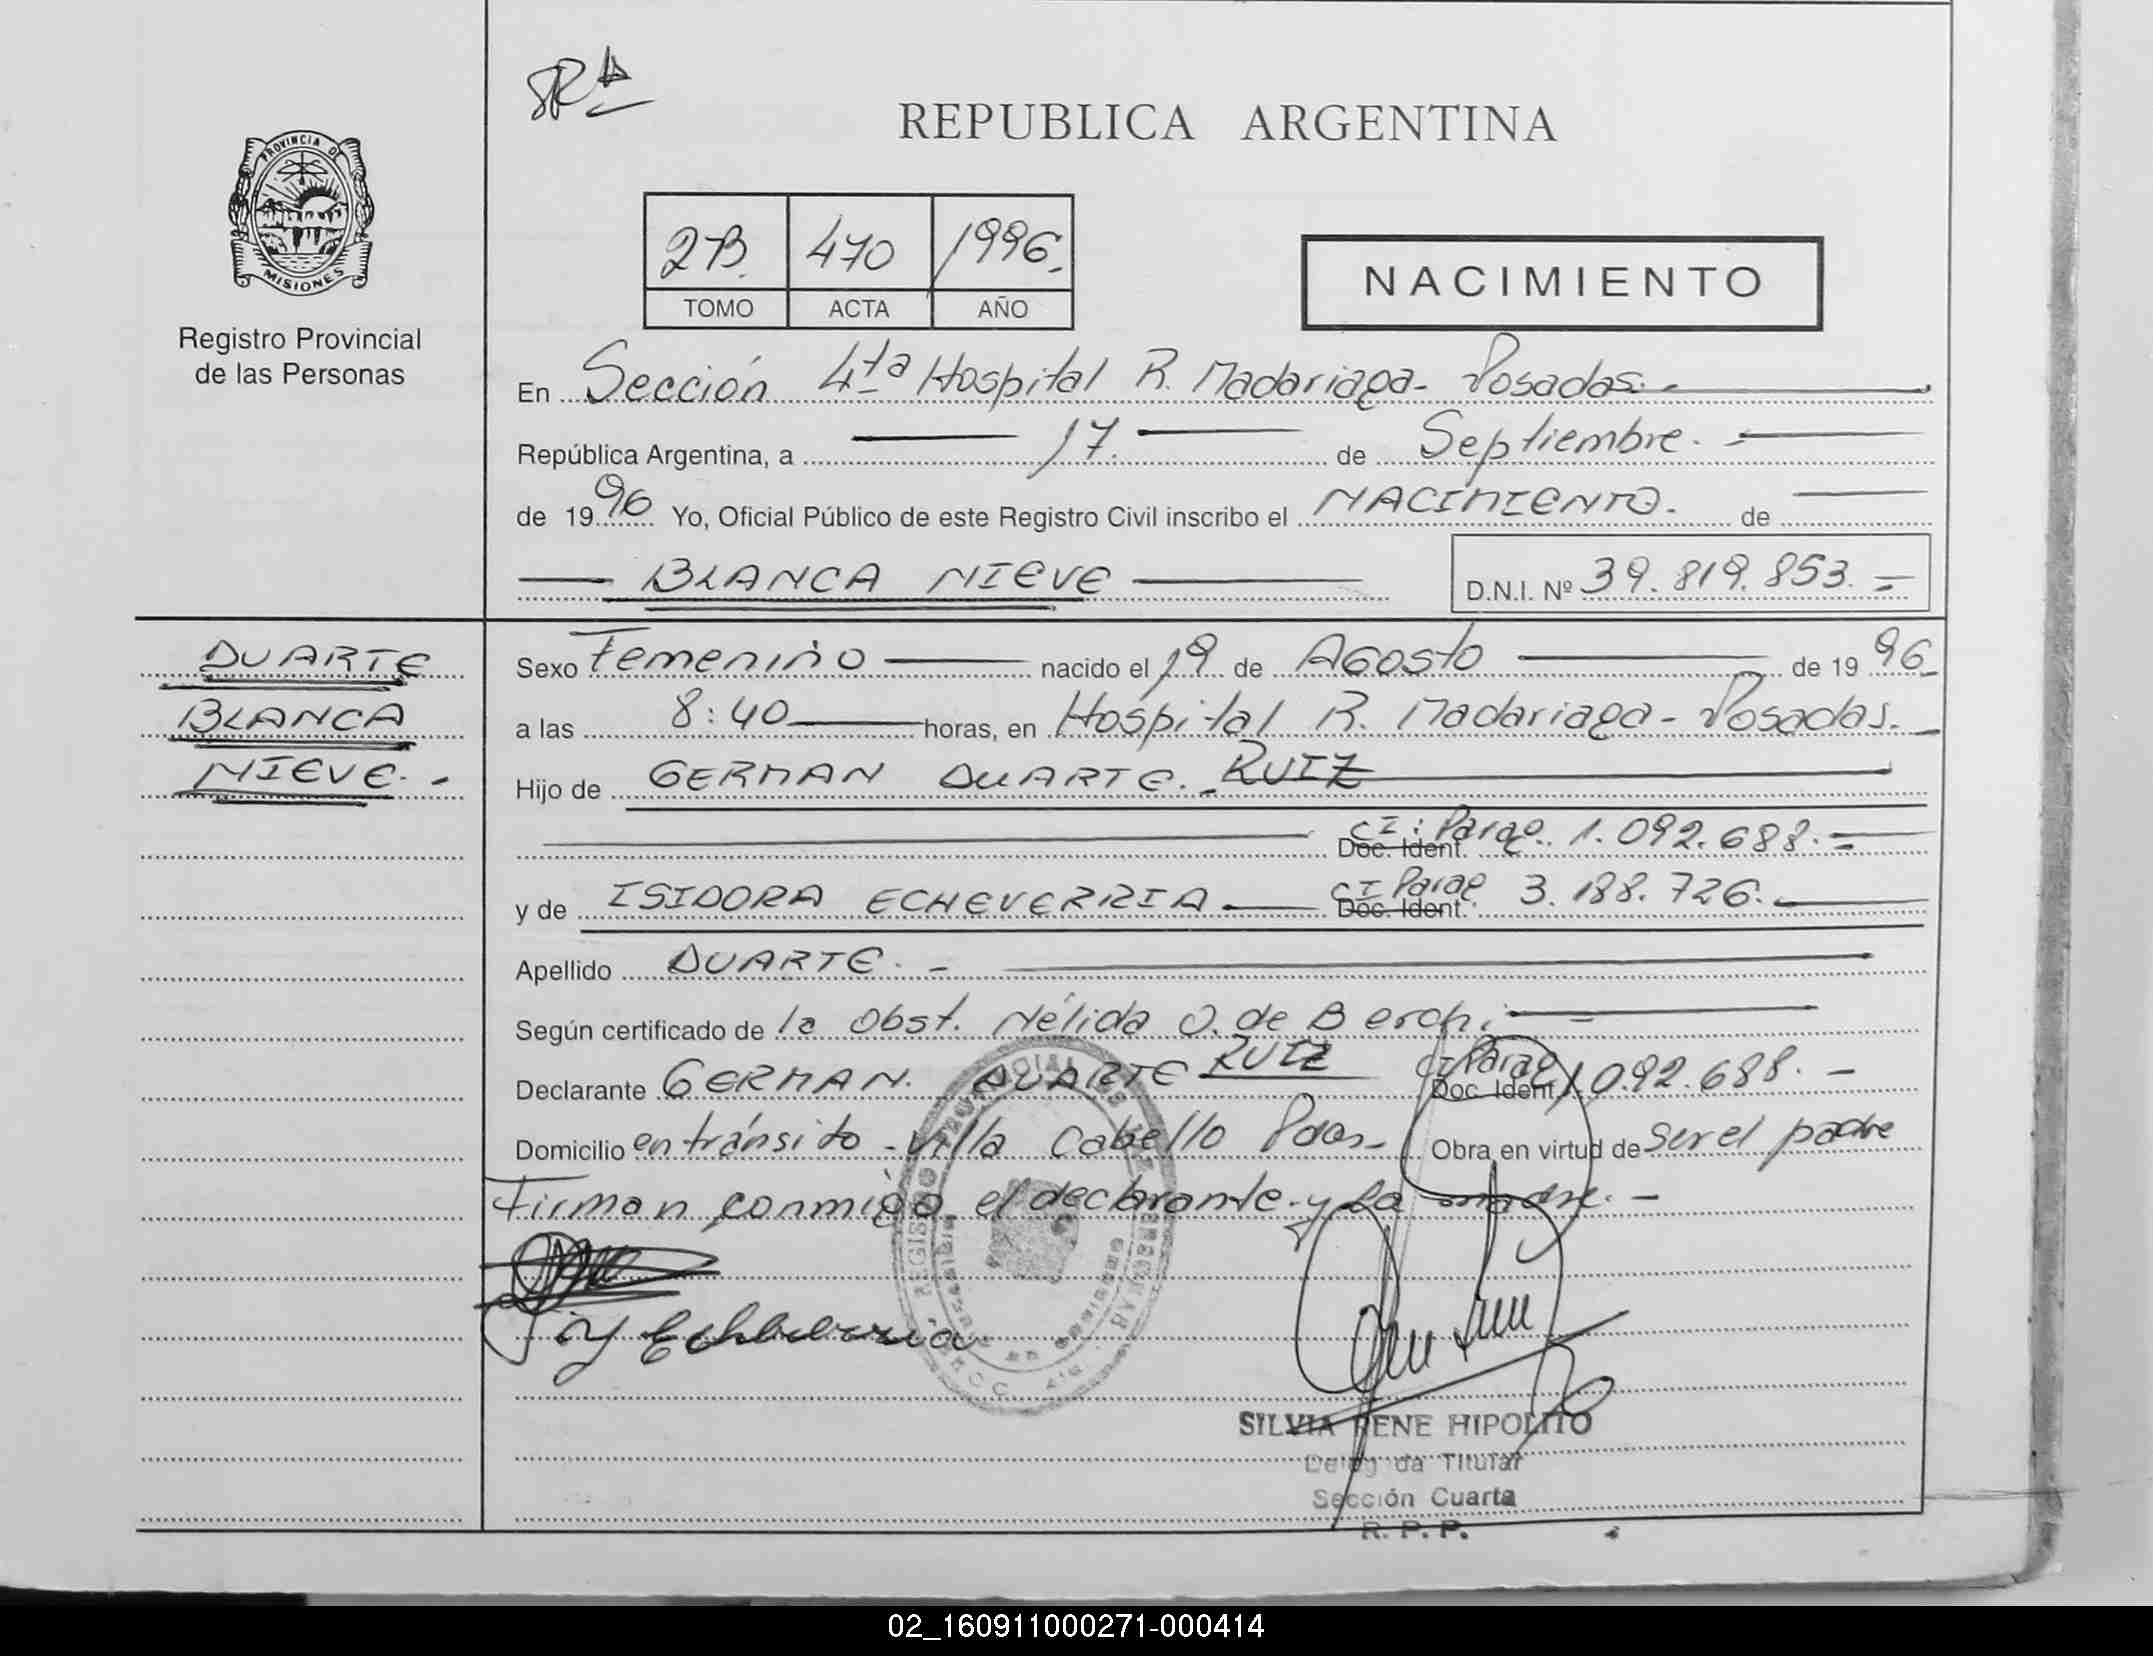 REPUBLICA ARGENTINA
PROVINCIA DE
MISIONES
Registro Provincial
de las Personas
2B. 470 1996.
TOMO ACTA AÑO
NACIMIENTO
En Sección 4ta Hospital R. Madariaga - Posadas.-
República Argentina, a 17. de Septiembre. -
de 1996 Yo, Oficial Público de este Registro Civil inscribo el NACIMIENTO. de
BLANCA NIEVE D.N.I. Nº 39.819.853. -
DUARTE
BLANCA
NIEVE. -
Sexo Femenino nacido el 19 de AGosto de 1996-
a las 8:40 horas, en Hospital R. Madariaga - Posadas. -
Hijo de GERMAN DUARTE. - RUIZ
CI: Parag. Doc. Ident. 1.092.688. -
y de ISIDORA ECHEVERRIA - CI Parag Doc. Ident. 3.188.726. -
Apellido DUARTE. -
Según certificado de la obst. Nélida O. de Berchi -
Declarante GERMAN. DUARTE RUIZ CI Parag Doc. Ident. 1.092.688. -
Domicilio en tránsito - Villa Cabello Pdas - Obra en virtud de Ser el padre
Firman conmigo el declarante y la madre. -
Echeverria
SILVIA RENE HIPOLITO
Delegada Titular
Sección Cuarta
R. P. P.
02_160911000271-000414